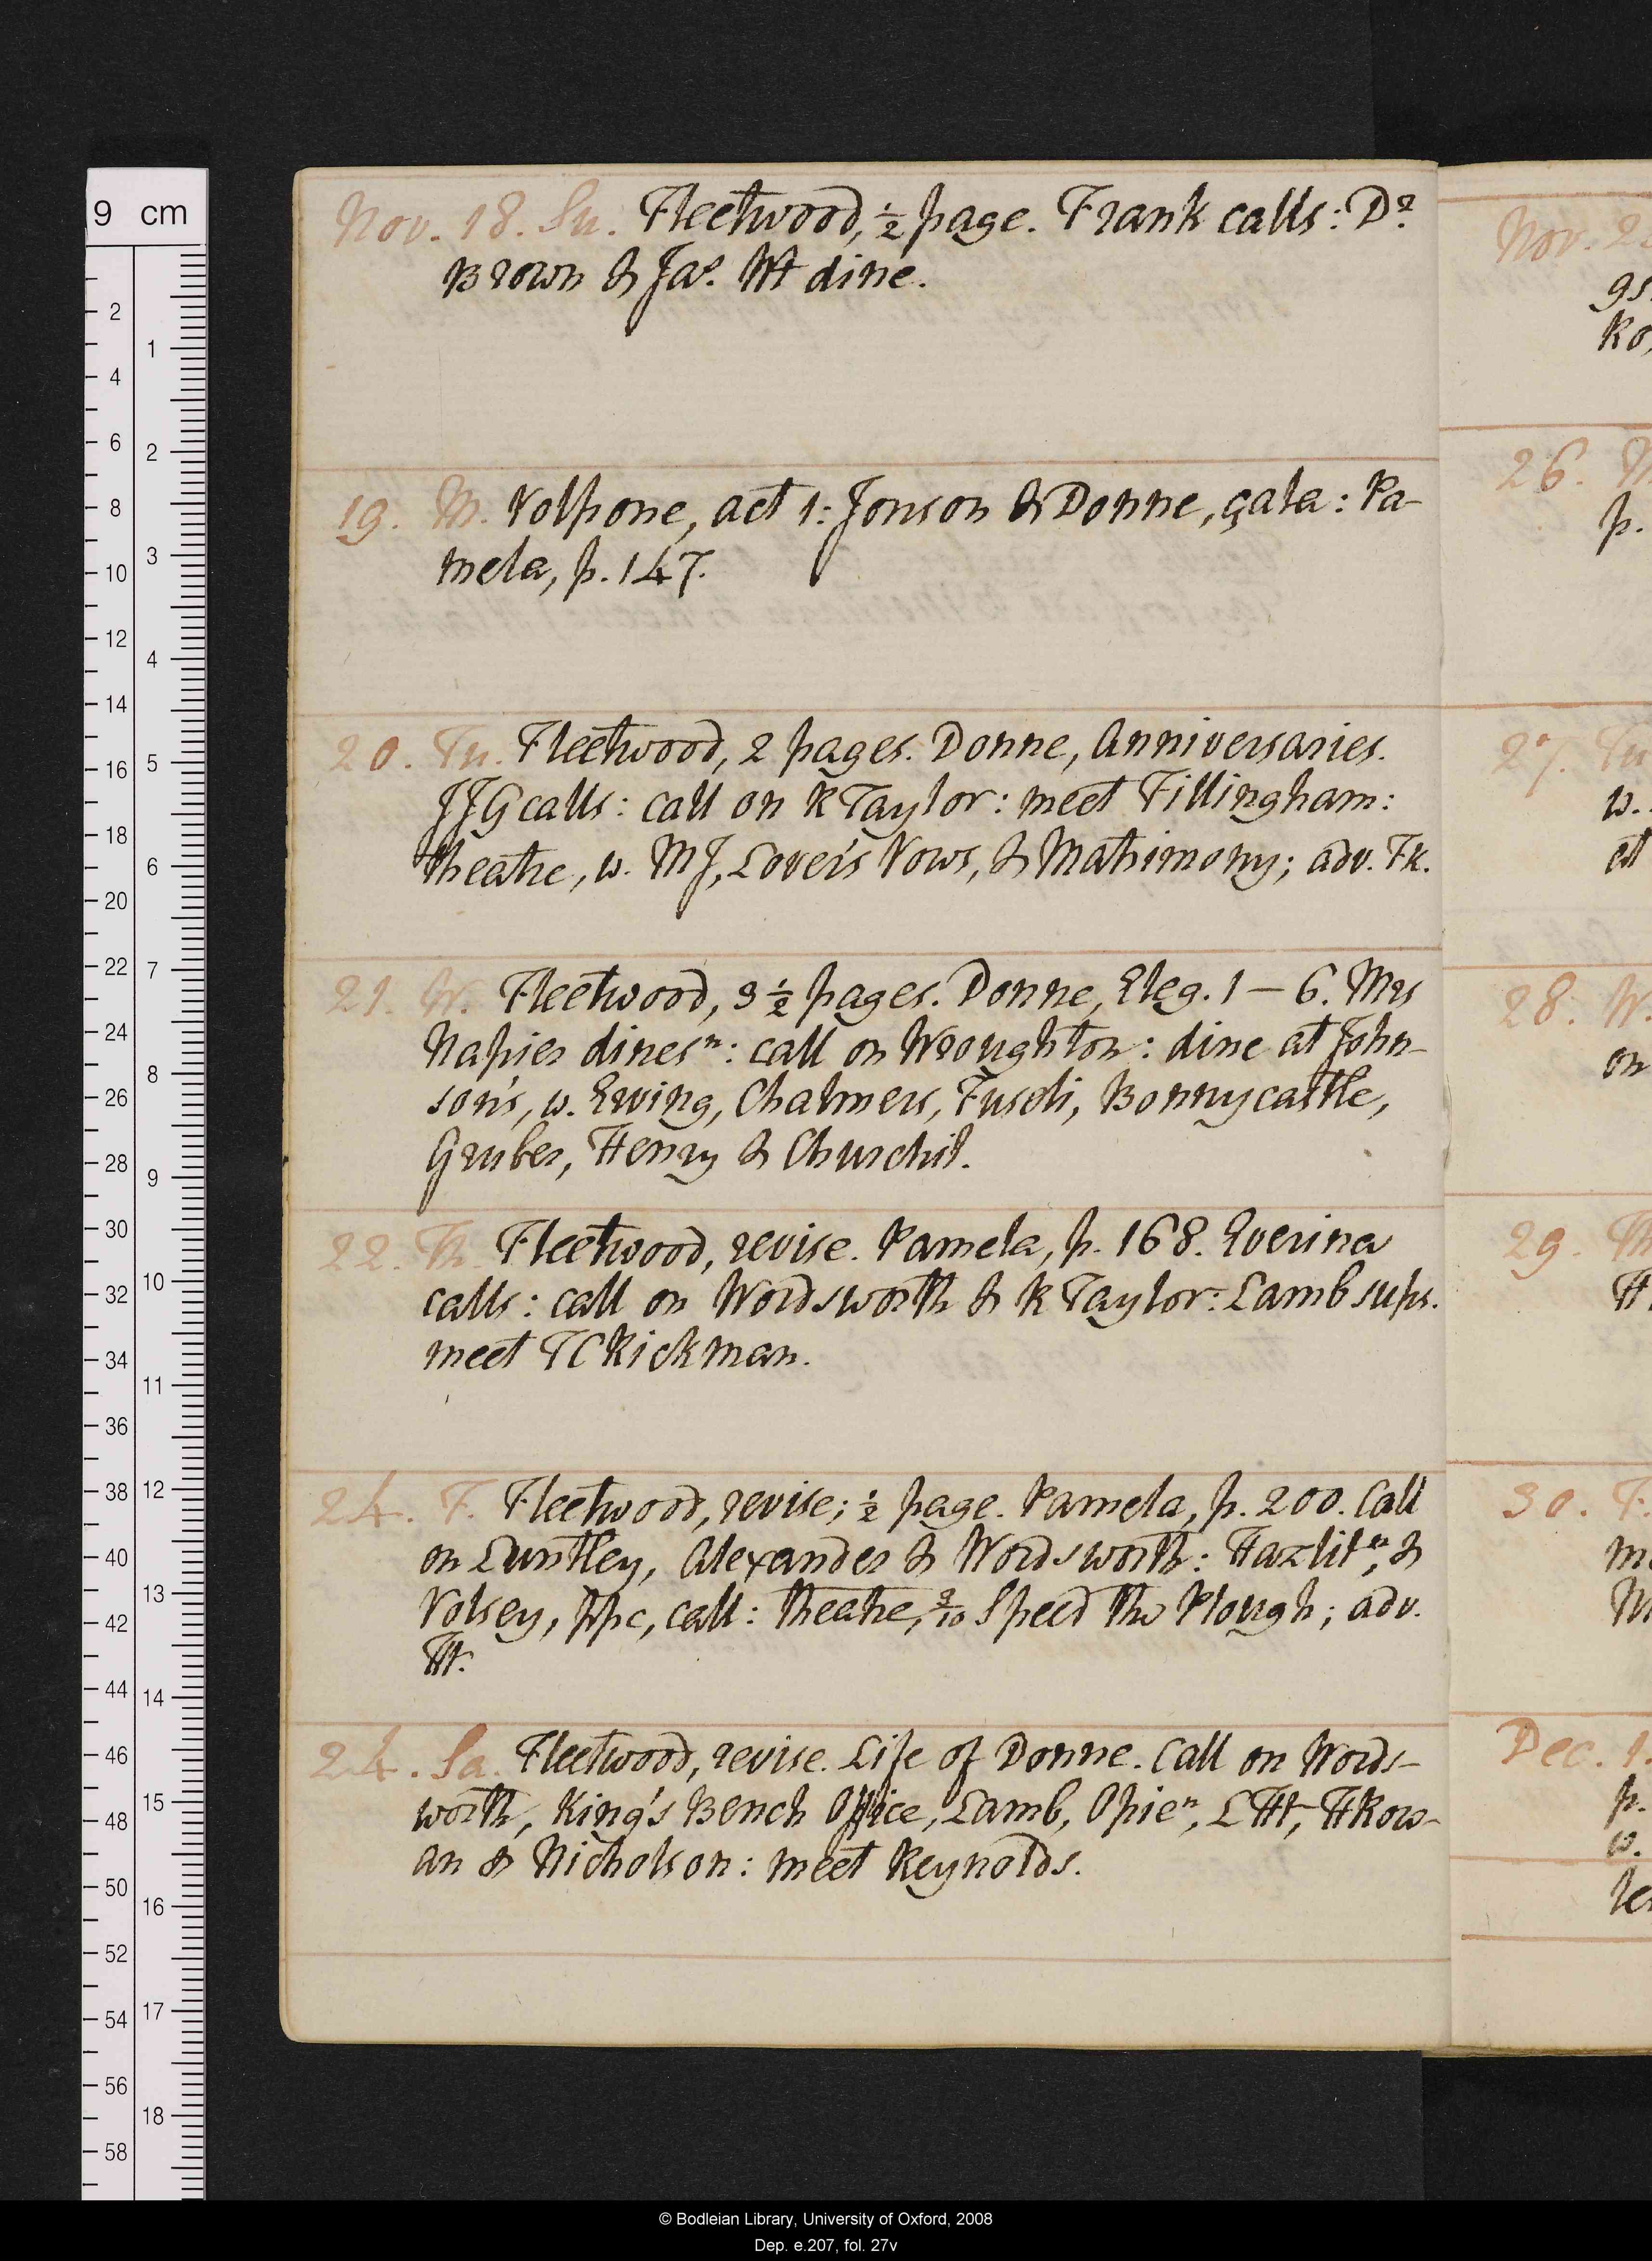 Nov. 18. Su. Fleetwood, ½ page. Frank calls: Dr.
Brown & Jas. Ht dine.
19. M. Volpone, act 1: Jonson & Donne, çala: Pa-
mela, p. 147.
20. Tu. Fleetwood, 2 pages. Donne, Anniversaries.
JJG calls: call on R Taylor: meet Fillingham:
theatre, w. MJ, Lover's Vows, & Matrimony; adv. Fk.
21. W. Fleetwood, 3 ½ pages. Donne, Eleg. 1 — 6. Mrs
Napier dines n: call on Wroughton: dine at John-
son's, w. Ewing, Chalmers, Fuseli, Bonnycastle,
Gruber, Henry & Churchil.
22. Th. Fleetwood, revise. Pamela, p. 168. Everina
calls: call on Wordsworth & R Taylor: Lamb sups.
meet TC Rickman.
24. F. Fleetwood, revise; ½ page. Pamela, p. 200. Call
on Luntley, Alexander & Wordsworth: Hazlit n, &
Volsey, ppc, call: theatre, 3/10 Speed the Plough; adv.
Ht.
24. Sa. Fleetwood, revise. Life of Donne. Call on Words-
worth, King's Bench Office, Lamb, Opie n, LHt, HRow-
an & Nicholson: meet Reynolds.
Nov. 2
gs
Ro
26. M
p.
27. Tu
w.
at
28. W.
on
29. Th
H
30. F.
me
M
Dec. 1.
p.
w.
le
9 cm
2
1
4
6
2
8
3
10
12
4
14
16
5
18
6
20
22
7
24
8
26
28
9
30
32
10
34
11
36
38
12
40
13
42
44
14
46
15
48
50
16
52
54
17
56
18
58
© Bodleian Library, University of Oxford, 2008
Dep. e.207, fol. 27v